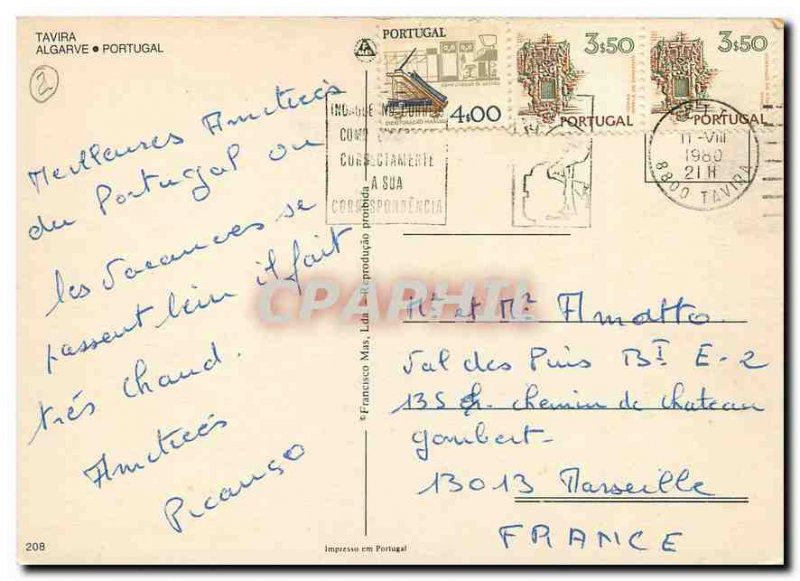 TAVIRA
ALGARVE • PORTUGAL
2
Meilleures Amitiés
du Portugal ou
les vacances se
passent bien il fait
très chaud.
Amitiés
Picanço
208
PORTUGAL
4$00
3$50
PORTUGAL
3$50
PORTUGAL
CORRECTAMENTE
A SUA
CORRESPONDÊNCIA
11-VIII
1980
21 H
8800 TAVIRA
© Francisco Mas, Lda - Reprodução proibida
CPAPHIL
Mr et Mr Amatto
Val des Pins Bt E-2
135 ch. chemin de chateau
gombert
13013 Marseille
FRANCE
Impresso em Portugal